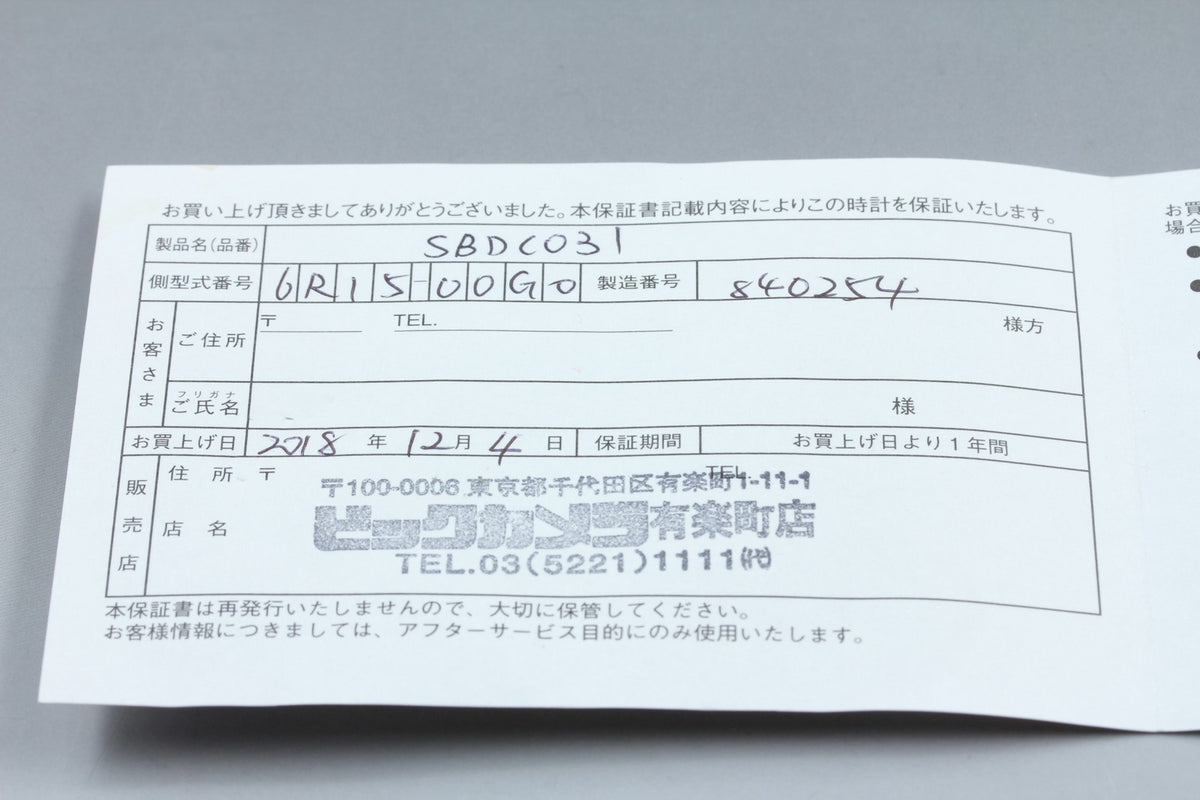 お買い上げ頂きましてありがとうございました。本保証書記載内容によりこの時計を保証いたします。
製品名(品番) SBDC031
側型式番号 6R15-00G0 製造番号 840254
お客さま
ご住所 〒 TEL. 様方
フリガナ
ご氏名 様
お買上げ日 2018 年 12月 4 日 保証期間 お買上げ日より1年間
販売店
住所 〒 TEL.
〒100-0006 東京都千代田区有楽町1-11-1
店名 ビックカメラ有楽町店
TEL.03(5221)1111㈹
本保証書は再発行いたしませんので、大切に保管してください。
お客様情報につきましては、アフターサービス目的にのみ使用いたします。
お買
場合